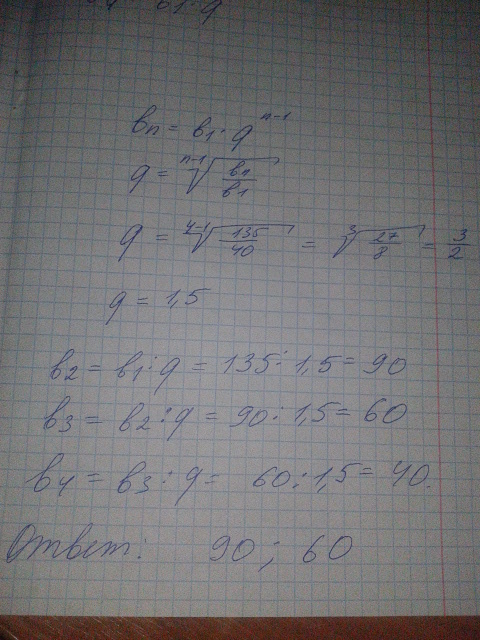 bn = b1 · q^(n-1)
q = ^(n-1)√(bn/b1)
q = ^(4-1)√(135/40) = ³√(27/8) = 3/2
q = 1,5
b2 = b1 : q = 135 : 1,5 = 90
b3 = b2 : q = 90 : 1,5 = 60
b4 = b3 : q = 60 : 1,5 = 40.
Ответ: 90 ; 60